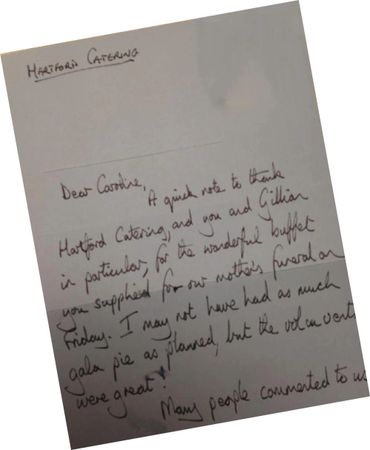 HARTFORD CATERING
Dear Caroline,
A quick note to thank
Hartford Catering, and you and Gillian
in particular, for the wonderful buffet
you supplied for our mother's funeral on
Friday. I may not have had as much
gala pie as planned, but the vol au vents
were great!
Many people commented to us